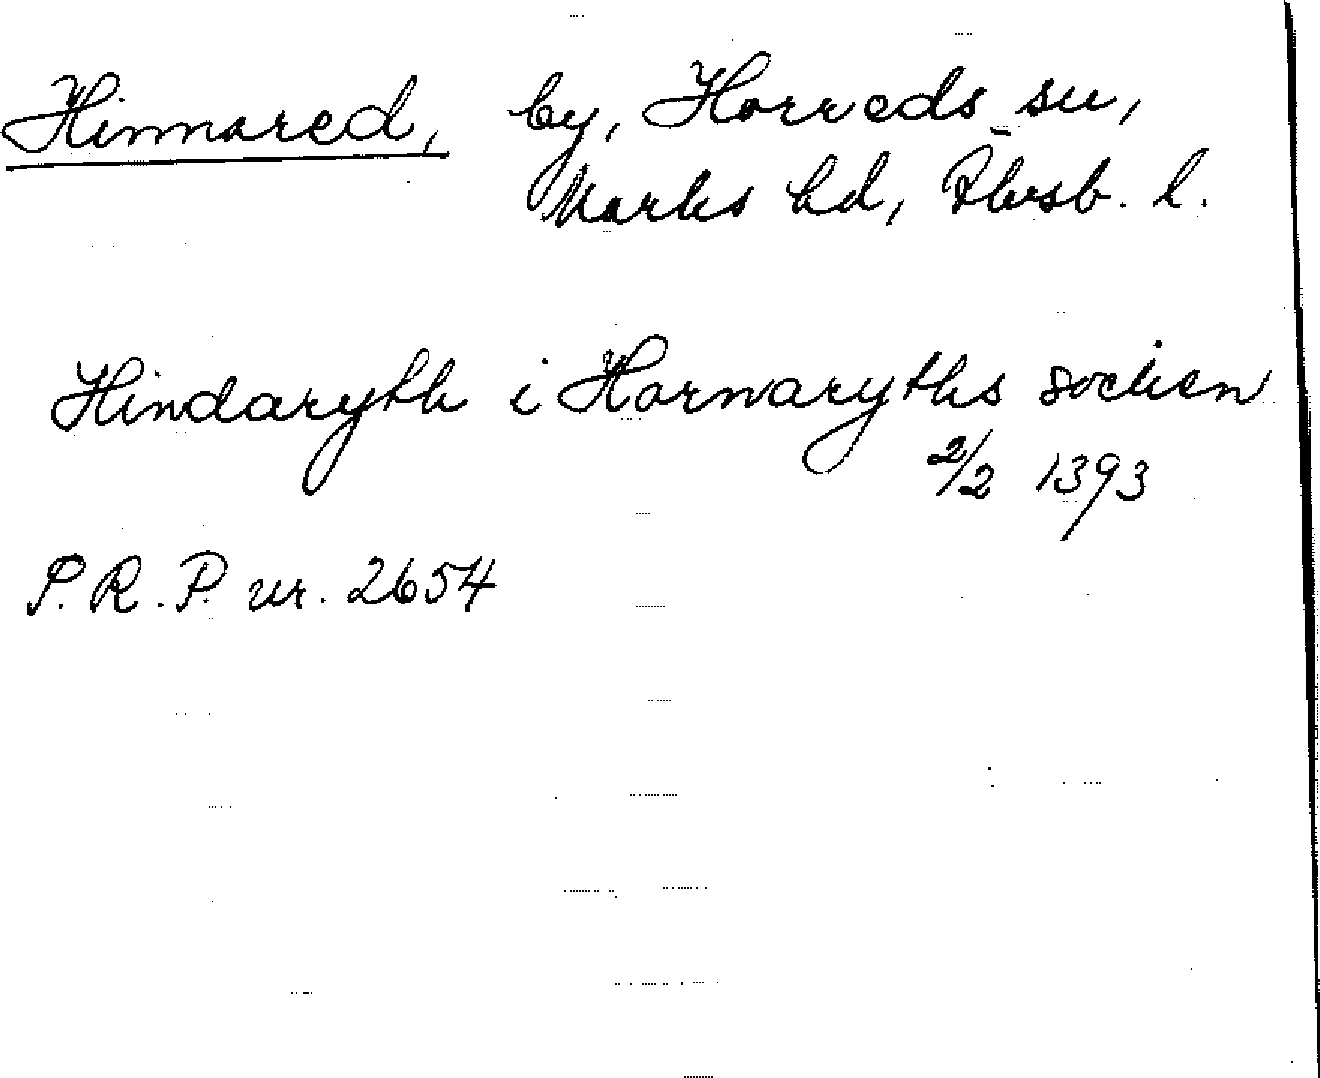 Hinnared, by, Horreds sn,
Marks hd, Älvsb. l.
Hindaryth i Hornaryths socken
2/2 1393
P.R.P. nr. 2654